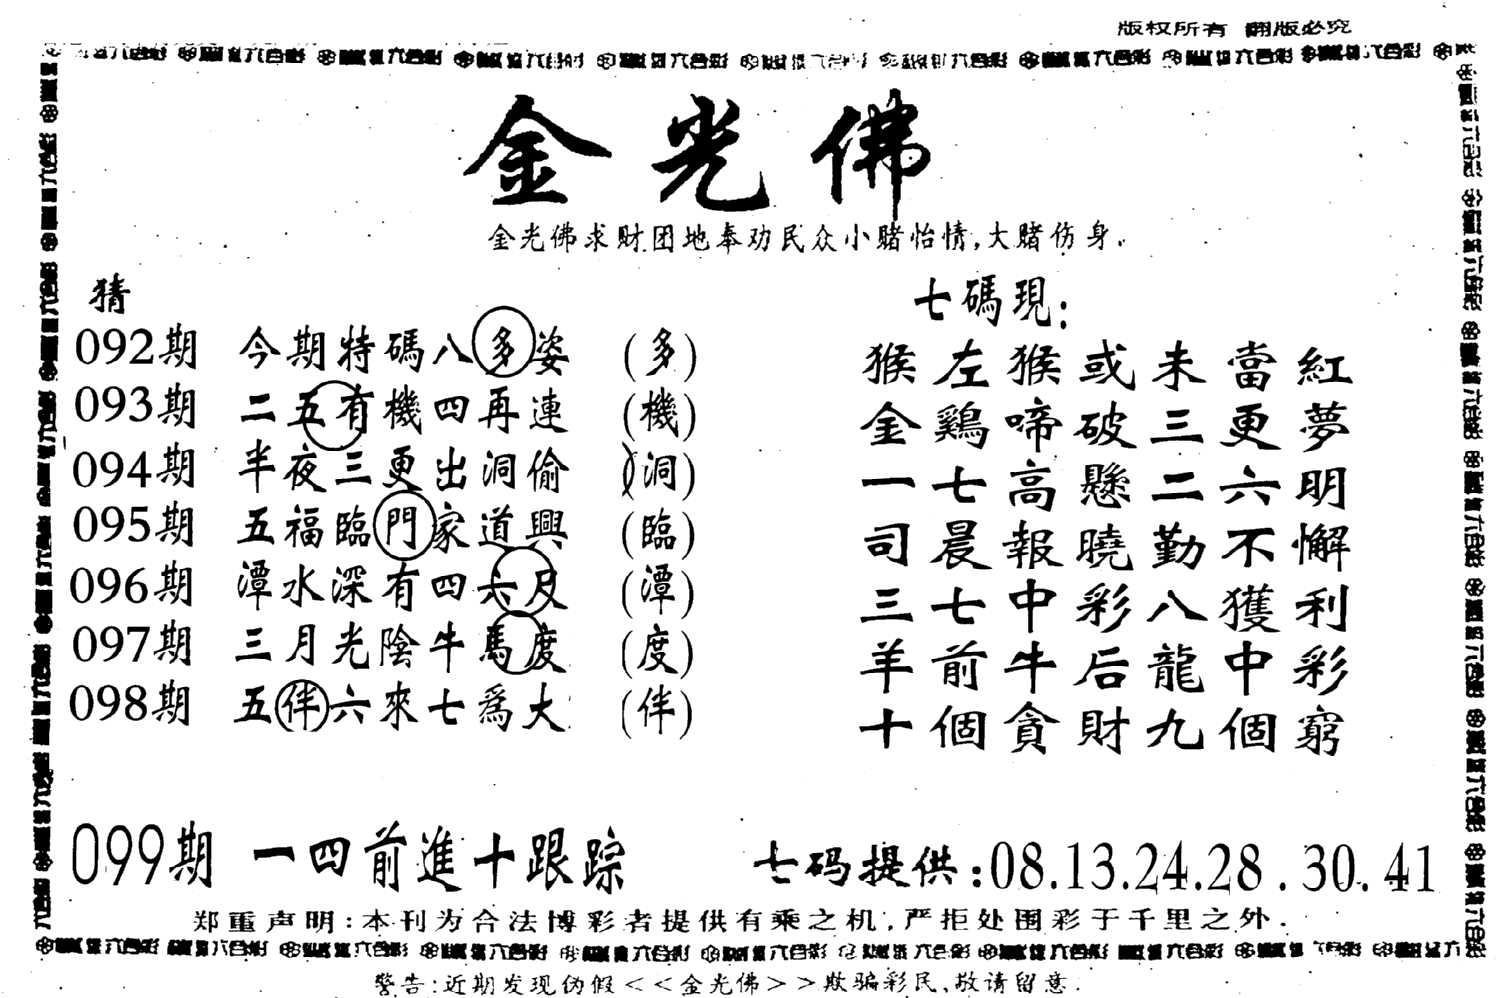 版权所有 翻版必究
金光佛
金光佛求财团地奉劝民众小赌怡情,大赌伤身.
猜
092期 今期特碼八多姿 (多)
093期 二五有機四再連 (機)
094期 半夜三更出洞偷 (洞)
095期 五福臨門家道興 (臨)
096期 潭水深有四六尺 (潭)
097期 三月光陰牛馬度 (度)
098期 五伴六來七爲大 (伴)
七碼現:
猴左猴或未當紅
金鷄啼破三更夢
一七高懸二六明
司晨報曉勤不懈
三七中彩八獲利
羊前牛后龍中彩
十個貪財九個窮
099期 一四前進十跟踪
七码提供:08.13.24.28.30.41
郑重声明:本刊为合法博彩者提供有乘之机,严拒处围彩于千里之外.
警告:近期发现伪假<<金光佛>>欺骗彩民,敬请留意.